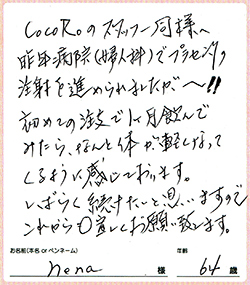 CoCoRoのスタッフ一同様へ
昨年病院(婦人科)でプラセンタ
注射を進められましたが、〜!!
初めての注文で1ヶ月飲んで
みたら、なんと体が軽くなって
くるように感じております。
しばらく続けたいと思いますので
これからも宜しくお願い致します。
お名前(本名 or ペンネーム) 年齢
nena 様 64 歳